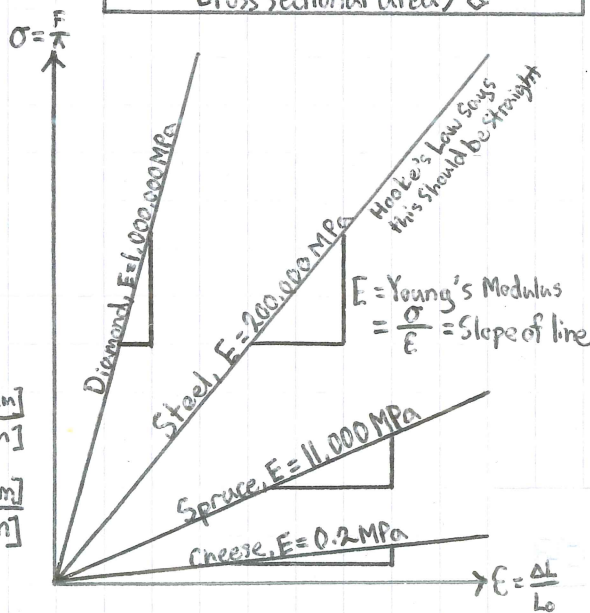 Cross sectional area
σ=F/A
Diamond, E=1,000,000MPa
Steel, E=200,000 MPa
Hooke's Law says
this should be straight
E=Young's Modulus
= σ/ε = Slope of line
Spruce, E=11,000 MPa
Cheese, E=0.2MPa
ε=ΔL/L₀